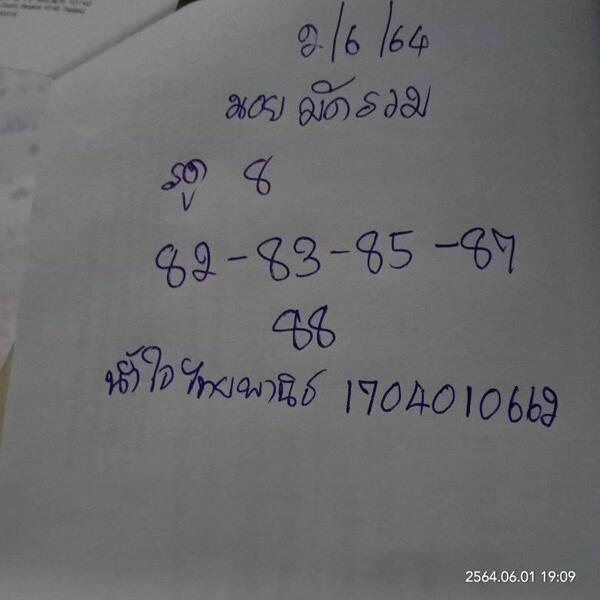 2/6/64
นอย มัดรวม
รูด 8
82-83-85-87
88
น้ำใจ ไทยพานิช 1704010662
2564.06.01 19:09